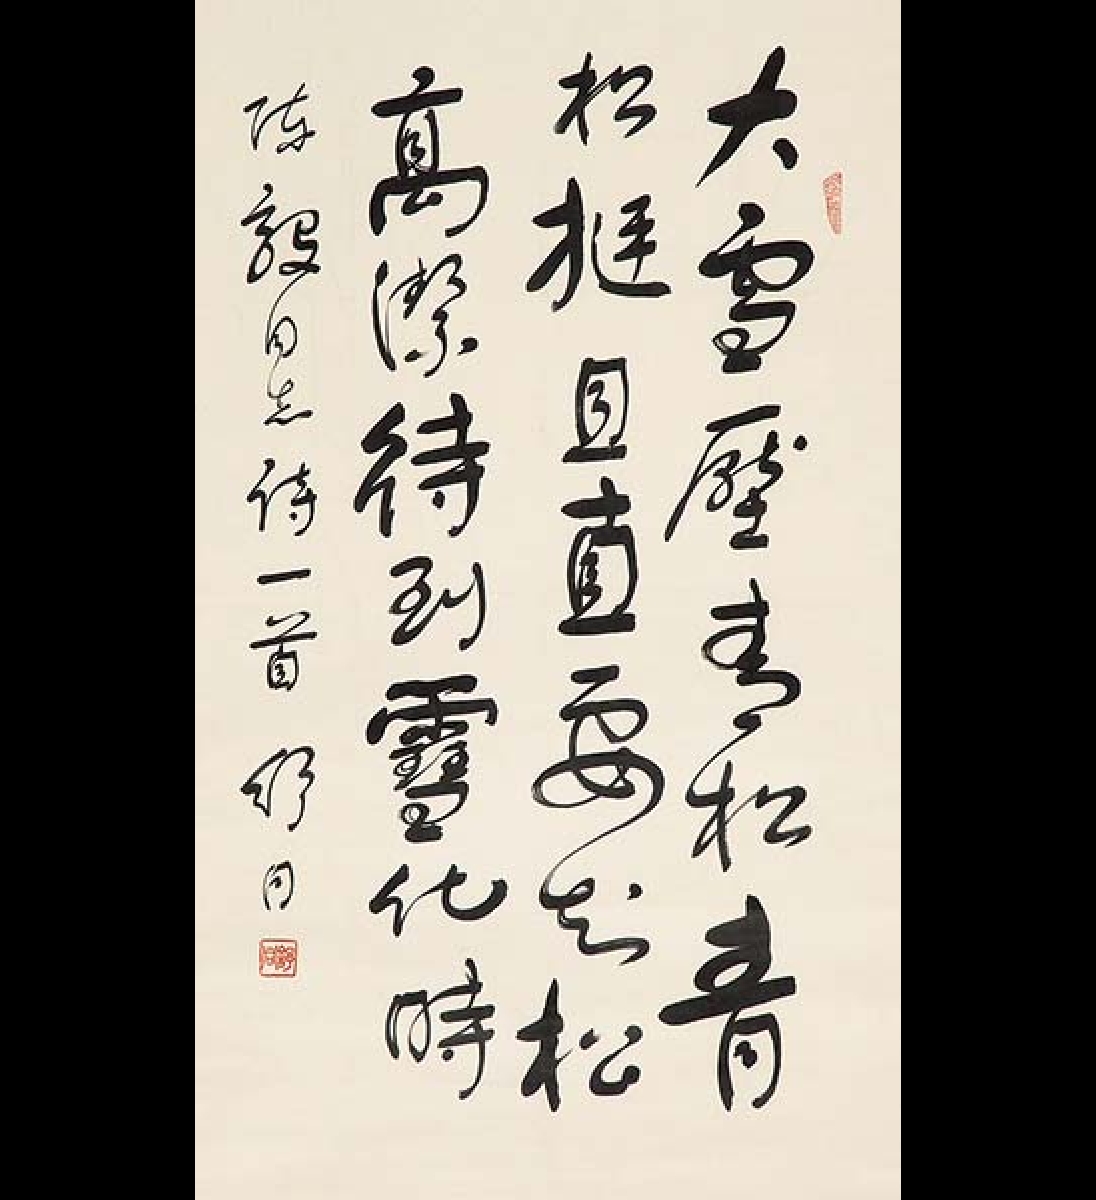 大雪壓青松青
松挺且直要知松
高潔待到雪化時
陳毅同志詩一首 舒同